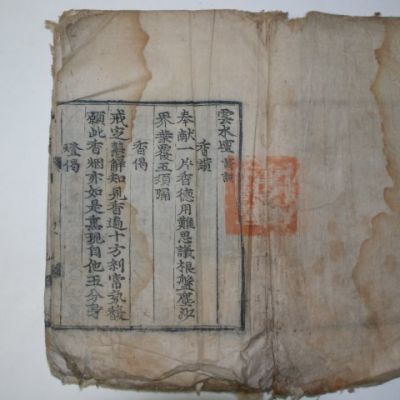 雲水壇
香讃
奉献一片香德用難思議根盤塵沙
界葉覆五須彌
香偈
戒定慧解知見香遍十方刹常氛馥
願此香烟亦如是熏現自他五分身
燈偈